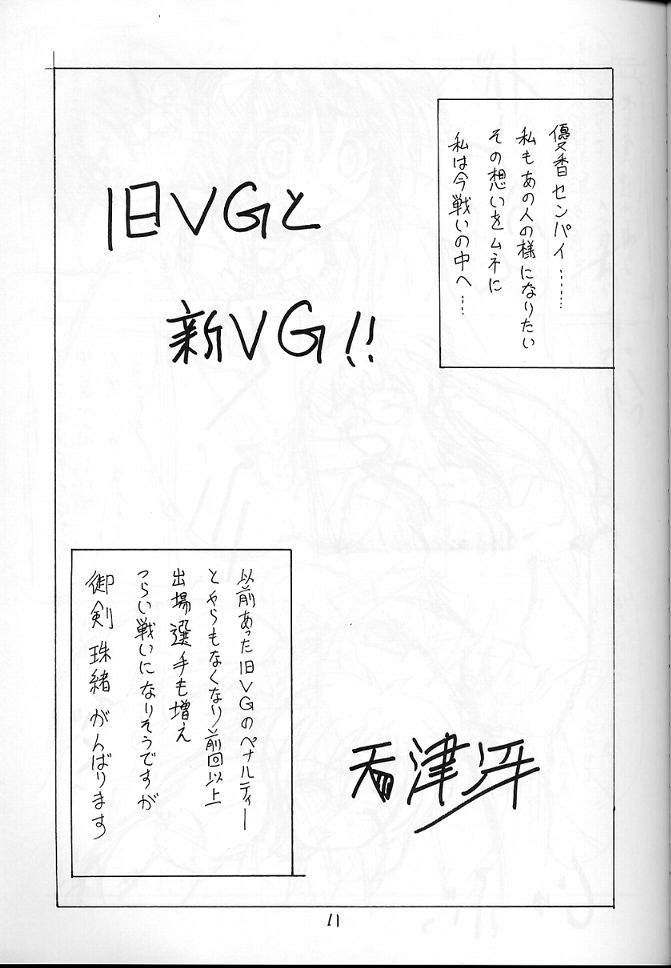 優香センパイ……
私もあの人の様になりたい
その想いをムネに
私は今戦いの中へ…
旧VGと
新VG!!
以前あった旧VGのペナルティー
とやらもなくなり前回以上
出場選手も増え
つらい戦いになりそうですが
御剣 珠緒 がんばります
津冴
11